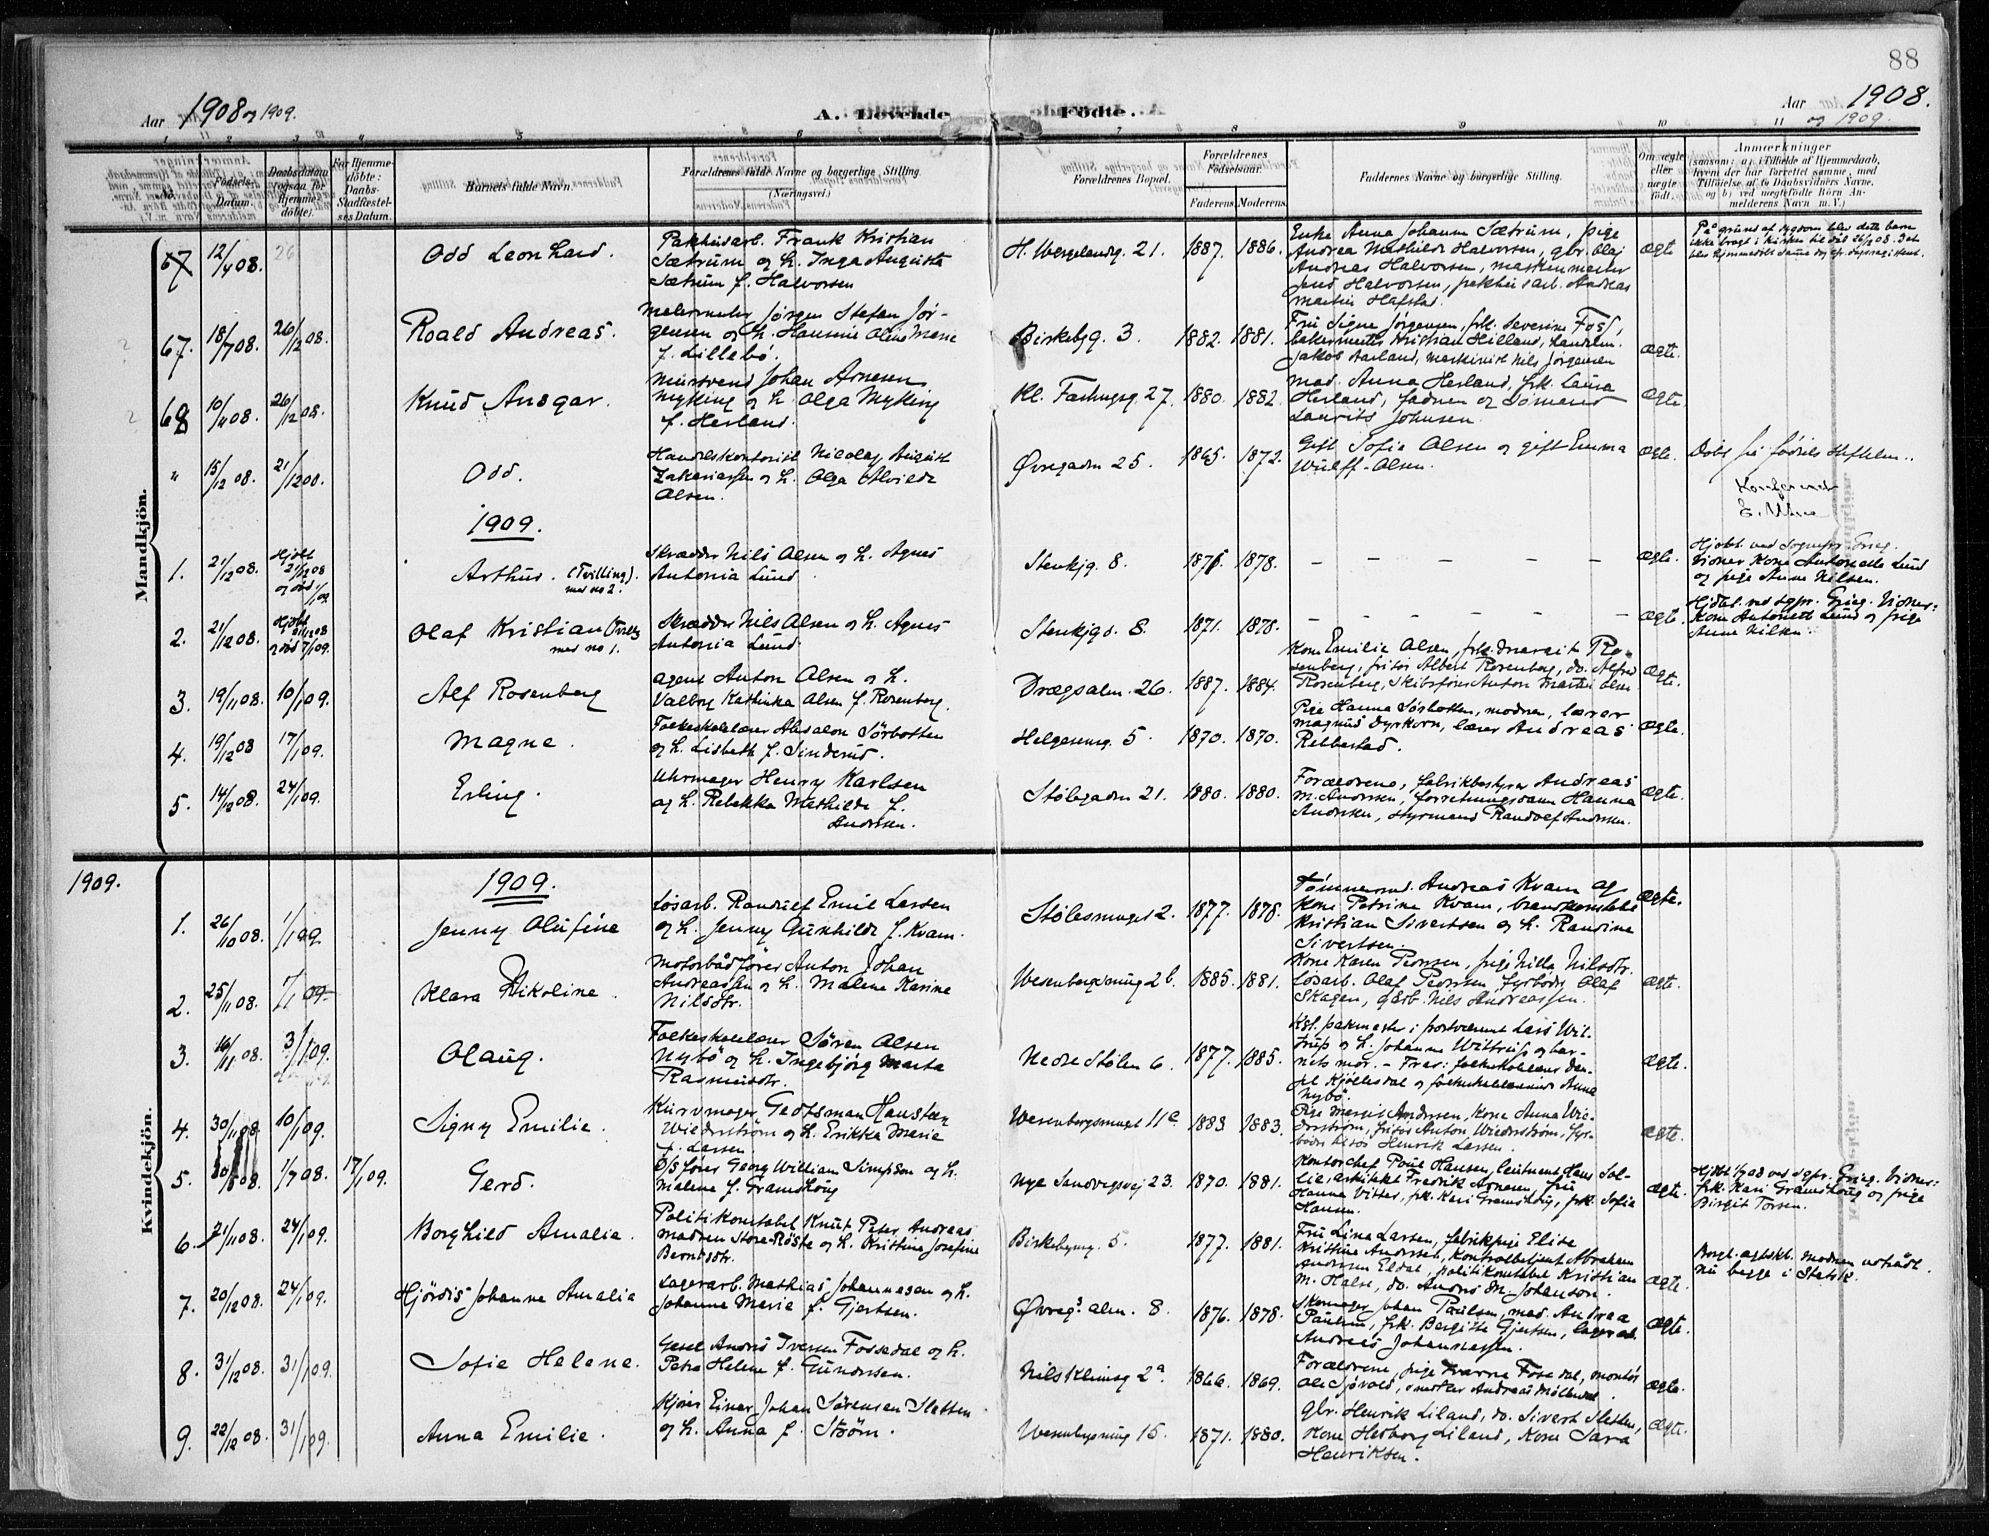 88
Aar 1908 og 1909.
A. Levende
Födte.
Aar 1908.
og 1909.
No.
Födsels-
Datum.
Daabsdatum
(ogsaa for
Hjemme-
döbte).
For Hjemme-
döbte:
Daabs-
Stadfæstel-
ses Datum.
Barnets fulde Navn.
Forældrenes fulde Navne og borgerlige Stilling.
(Næringsvei.)
Forældrenes Bopæl.
Forældrenes
Födselsaar.
Faderens. Moderens.
Faddernes Navne og borgerlige Stilling.
Om ægte
eller
uægte
födt.
Anmærkninger
Mandkjön.
67 12/4 08. 26
Odd Leonhard.
Pakhusarb. Frank Kristian
Sætrum og h. Inga Augusta
Sætrum f. Halvorsen
H. Wergelandsg. 21. 1887. 1886.
Enke Anna Johanne Sætrum, pige
Andrea Mathilde Halvorsen, gbr. Olaf
Andreas Halvorsen, maskinmester
Halvorsen, pakhusarb. Andreas
Martin Hafstad.
ægte
67. 18/7 08. 26/12 08.
Roald Andreas.
Malermester Jørgen Stefan Jør-
gensen og h. Hansine Oline Marie
f. Lillebö.
Birkebg. 3. 1882. 1881.
Fru Signe Jørgensen, frk. Severine Foss,
bakermester Kristian Hilland, handelsm.
Jakob Aarland, maskinist Nils Jørgensen
ægte.
68 10/11 08. 26/12 08.
Knud Ansgar.
Mursvend Johan Arnesen
Myking og h. Olga Myking
f. Herland.
Kl. Farhusg 27. 1880. 1882.
Mad. Anna Herland, frk. Laura
Herland, fadren og Sömand
Laurits Johnsen
ægte.
" 15/12 08. 21/12 08.
Odd.
Handelskontorist Nicolay August
Zakariassen og h. Olga Alvilde
Olsen.
Øvregaden 25. 1865. 1872.
Gift Sofie Olsen og gift Emma
Wulff-Olsen.
ægte.
Döbt på fødsels stiftelsen.
Konfereret
1909.
1. 21/12 08. Hjdbt 21/12 08 og död 1/1 09
Arthur. (Tvilling).
med no 2.
Skrædder Nils Olsen og h. Agnes
Antonia Lund
Stenkjg. 8. 1871. 1878.
ægte.
Hjdbt. ved sognepr. Grieg.
Vidner Kone Antonette Lund
og pige Anne Nilsen.
2. 21/12 08. Hjdbt 21/12 08 og död 7/1 09.
Olaf Kristian (Tvilling
med no 1.
Skrædder Nils Olsen og h. Agnes
Antonia Lund
Stenkjgd. 8. 1871. 1878.
ægte.
Hjdbt. ved sgpr. Grieg. Vidner:
Kone Antonett Lund og pige
Anne Nilsen.
3. 19/11 08. 10/1 09.
Alf Rosenberg
Agent Anton Olsen og h.
Valborg Kathinka Olsen f. Rosenberg.
Drægsalm. 26. 1887. 1884.
Kone Emilie Olsen, frk. Margit Ro-
senberg, frisør Albert Rosenberg, do. Alfred
Rosenberg, Skibsfører Anton Martin Olsen
ægte.
4. 19/12 08 17/1 09.
Magne.
Folkeskolelærer Absalon Sörbotten
og h. Lisbeth f. Sinderud.
Helgesensg. 5. 1870. 1870.
Pige Hanna Sörbotten, modren, lærer
Magnus Dyrkorn, lærer Andreas
Rebbestad.
ægte.
5. 14/12 08. 24/1 09.
Erling.
Uhrmager Henry Karlsen
og h. Rebekka Mathilde f.
Andersen.
Stølegaden 21. 1880. 1880.
Forældrene, fabrikbestyrer Andreas
M. Andersen, forretningsdame Hanna
Andersen, styrmand Randolf Andersen.
ægte.
1909.
Kvindekjön.
1909.
1. 26/10 08. 1/1 09
Jenny Olufine
Løsarb. Randulf Emil Larsen
og h. Jenny Gunhilde f. Kvam.
Stølesmuget 2. 1877. 1878.
Tömmermd. Andreas Kvam og
Kone Petrine Kvam, brandkonstabel
Kristian Sivertsen og h. Randine
Sivertsen.
ægte.
2. 25/11 08. 7/1 09
Klara Nikoline.
Motorbådfører Anton Johan
Andreassen og h. Malene Karine
Nilsdtr.
Wesenbergsmug 2b. 1885. 1881.
Kone Karen Pedersen, pige Milla Nilsdtr.
Løsarb. Olaf Pedersen, fyrböder Olaf
Skagen, Nils Andreassen.
ægte.
3. 16/11 08. 3/1 09.
Olaug.
Folkeskolelærer Sören Olsen
Nybö og h. Ingebjörg Marta
Rasmusdtr.
Nedre Stölen 6. 1877. 1885.
Kgl. pakmester i postvæsenet Lars Wil-
trup og h. Johanne Wittrup og bar-
nets mor. – Fras: folkeskolelærer Dan-
iel Kjöllesdal og folkeskolelærerinde Anna
Nybö.
ægte.
4. 30/11 08 10/1 09.
Signy Emilie.
Kurvmager Gedtsman Hansten
Wiederström og h. Erikka Marie
f. Larsen
Wesenbergsmuget 11a 1883 1883.
Pige Margit Andersen, Kone Anna Wie-
derström, frisør Anton Wiederström, fyr-
böder Henrik Larsen.
ægte.
5. 30/5 08. 1/7 08. 17/1 09.
Gerd.
D/S fører Georg William Simpson og h.
Malene f. Gramshaug
Nye Sandvigsvej 23. 1870. 1881.
Kontorchef Poul Hansen, leutnent Hans Sol-
lie, arkitekt Fredrik Arnesen, fru
Hanna Vitter, frk. Kari Gramshaug, frk. Sofie
Hansen.
ægte.
Hjdbt 1/7 08 ved sgpr. Grieg. Vidner:
frk. Kari Gramshaug og pige
Birgit Torsen.
6. 21/11 08. 24/1 09.
Borghild Amalie.
Politikonstabel Knut Peter Andreas
Madsen Store-Röste og h. Kristine Josefine
Berntsdtr.
Birkebgng. 5. 1877. 1881.
Fru Lina Larsen, fabrikpige Elise
Kristine Andersen, Kontrolbetjent Abraham
Andersen Eldal, politikonstabel Kristian
M. Halse, do. Anders M. Johanson.
ægte.
Borgl. ægtesk. modren udtrådt.
Nu begge i Statsk.
7. 20/12 08. 24/1 09.
Hjördis Johanne Amalie
Lagerarb. Mathias Johannesen og h.
Johanne Marie f. Gjertsen.
Øvreg. alm. 8. 1876. 1878.
Skomager Johan Paulsen, mad. Andrea
Paulsen, frk. Bergitte Gjertsen, lagerarb.
Andreas Johannessen.
ægte.
8. 31/12 08. 31/1 09.
Sofie Helene.
Gesel Anders Iversen Fossedal og h.
Petra Helene f. Gundersen.
Nils Klimsg 2a. 1866. 1869.
Forældrene, pige Fossedal, montör
Ole Sjövold, snedker Andreas Möllendal.
ægte.
9. 22/12 08. 31/1 09.
Anna Emilie.
Kjører Einar Johan Sörensen Sletten
og h. Anna f. Ström.
Wesenbgsmug 15. 1871. 1880.
Gbr. Henrik Liland, do. Sivert Sletten,
Kone Hedborg Liland, Kone Sara
Henriksen.
ægte.